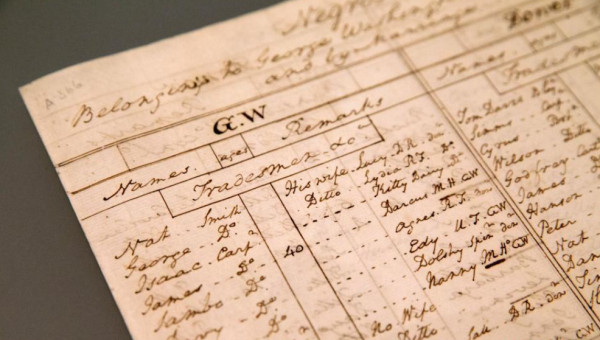 A 366
Negroes
Belonging to George Washington
and by marriage
G.W
Dower
Names.
ages
Remarks
Names
ages
Tradesmen &c.
Tradesmen
Nat . . Smith
George . . Do
Isaac Carp. 40
James . . Do
Sambo Do
Do
Do
His wife Lucy D.R. don
Ditto . . Lydia R.F. Do
Ditto . . Kitty Dairy Do
Darcus M.H. GW
agnes R.F. don
Edy U.F. GW
Dolshy Spin. don
Nanny M.Ho GW
No Wife
Ditto
Sall D.R. don
Tom Davis
Simms Carp
Cyrus . . Do
Wilson Ditto
Godfrey Cart
James
Hanson
Peter
Nat